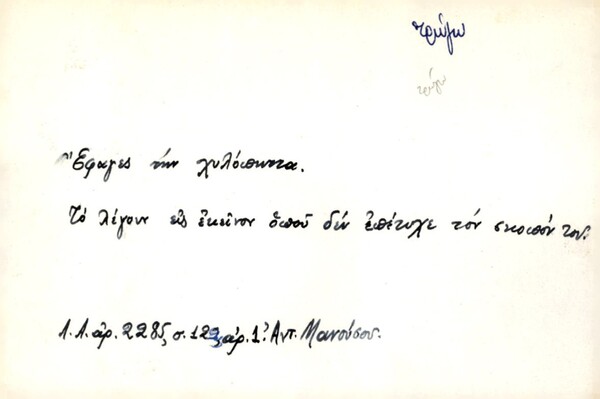 τρώγω
τρώγω
Ἔφαγες τὴν χυλόπηττα.
Τὸ λέγουν εἰς ἐκεῖνον ὁποῦ δὲν ἐπέτυχε τὸν σκοπόν του.
Λ.Α. ἀρ. 2285, σ. 122, ἀρ. 1. Ἀντ. Μανούσου.